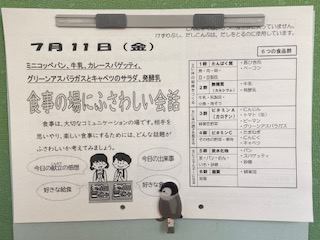 けずりぶし、だしこんぶは、だしをとるのに使用しています。
7月11日（金）
ミニコッペパン、牛乳、カレースパゲッティ、
グリーンアスパラガスとキャベツのサラダ、発酵乳
食事の場にふさわしい会話
食事は、大切なコミュニケーションの場です。相手を
思いやり、楽しい食事にするためには、どんな話題が
ふさわしいか考えてみましょう。
今日の献立の感想
今日の出来事
好きな給食
好きな
6つの食品群
1群 たんぱく質
・ベーコン
2群 無機質
（カルシウム）
・牛乳
・発酵乳
3群 ビタミンA
（カロテン）
・にんじん
・トマト（缶）
・ピーマン
・グリーンアスパラガス
4群 ビタミンC
・たまねぎ
・にんにく
・キャベツ
5群 炭水化物
・パン
・スパゲッティ
・砂糖
6群 脂質